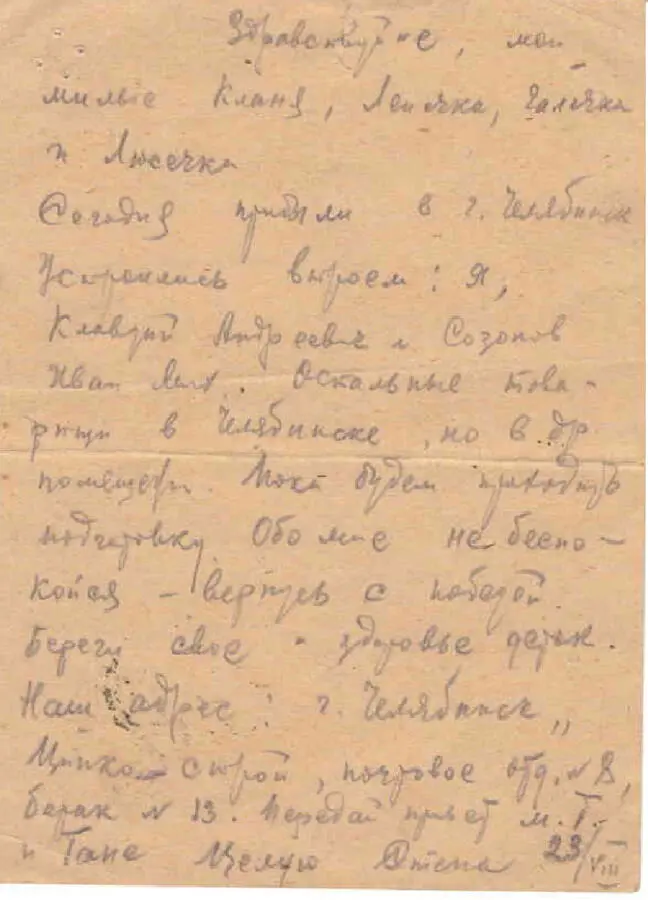 Здравствуйте, мои
милые Кланя, Леничка, Галечка
и Люсечка
Сегодня прибыли в г. Челябинск
Устроились втроем: Я,
Клавдий Андреевич и Созонов
Иван. Остальные това-
рищи в Челябинске, но в др.
помещени. Пока будем проходить
подготовку. Обо мне не беспо-
койся - вернусь с победой.
Береги свое и здоровье деток.
Наш адрес: г. Челябинск,,
Цинкострой, почтовое отд. N 8,
барак N 13. Передай привет М.Г.
и Тане Целую 23/VIII